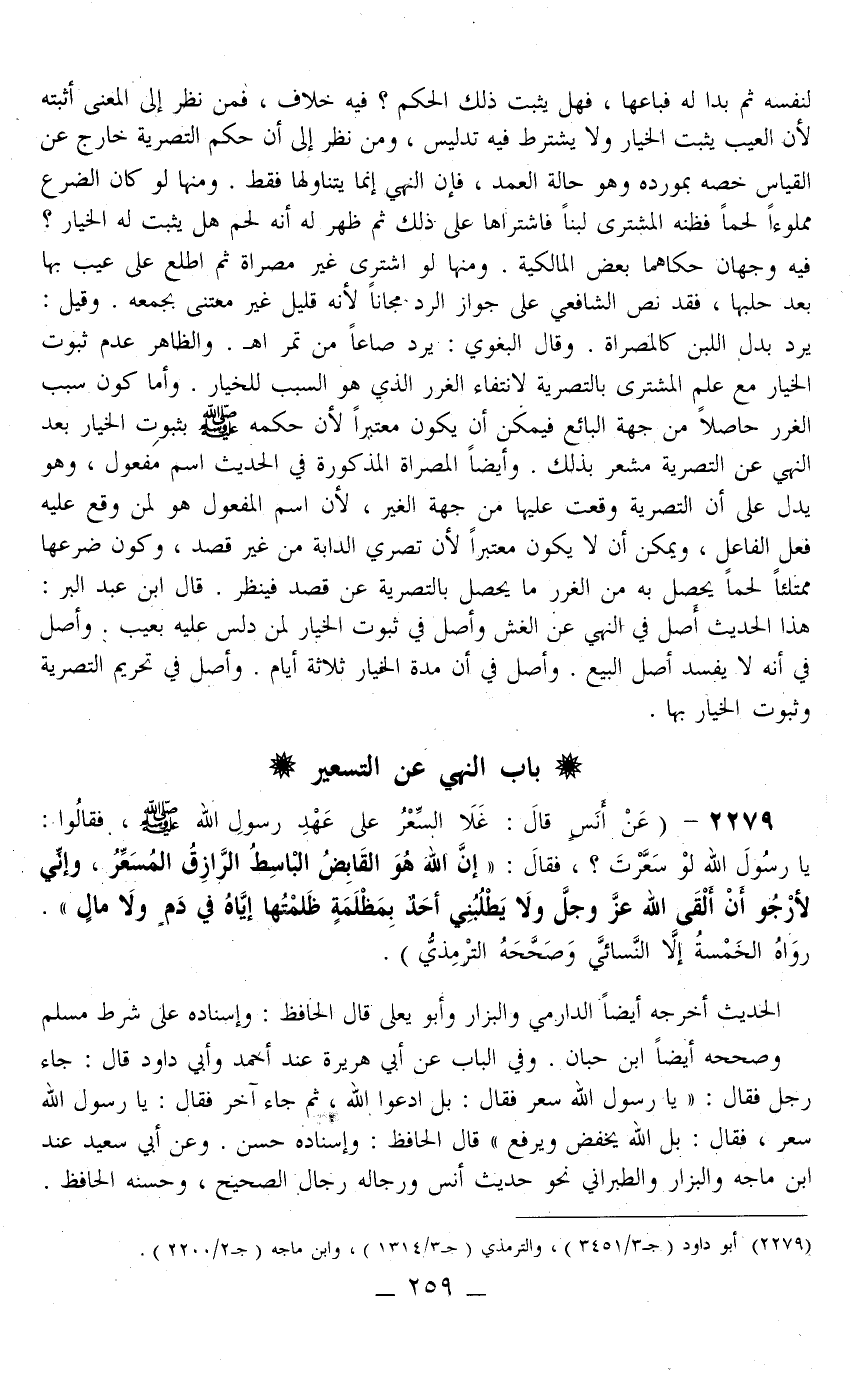 لنفسه ثم بدا له فباعها ، فهل يثبت ذلك الحكم ؟ فيه خلاف ، فمن نظر إلى المعنى أثبته
لأن العيب يثبت الخيار ولا يشترط فيه تدليس ، ومن نظر إلى أن حكم التصرية خارج عن
القياس خصه بمورده وهو حالة العمد ، فإن النهي إنما يتناولها فقط . ومنها لو كان الضرع
مملوءاً لحماً فظنه المشترى لبناً فاشتراها على ذلك ثم ظهر له أنه لحم هل يثبت له الخيار ؟
فيه وجهان حكاهما بعض المالكية . ومنها لو اشترى غير مصراة ثم اطلع على عيب بها
بعد حلبها ، فقد نص الشافعي على جواز الرد مجاناً لأنه قليل غير معتنى بجمعه . وقيل :
يرد بدل اللبن كالمصراة . وقال البغوي : يرد صاعاً من تمر اهـ . والظاهر عدم ثبوت
الخيار مع علم المشترى بالتصرية لانتفاء الغرر الذي هو السبب للخيار . وأما كون سبب
الغرر حاصلاً من جهة البائع فيمكن أن يكون معتبراً لأن حكمه ﷺ بثبوت الخيار بعد
النهي عن التصرية مشعر بذلك . وأيضاً المصراة المذكورة في الحديث اسم مفعول ، وهو
يدل على أن التصرية وقعت عليها من جهة الغير ، لأن اسم المفعول هو لمن وقع عليه
فعل الفاعل ، ويمكن أن لا يكون معتبراً لأن تصري الدابة من غير قصد ، وكون ضرعها
ممتلئاً لحماً يحصل به من الغرر ما يحصل بالتصرية عن قصد فينظر . قال ابن عبد البر :
هذا الحديث أصل في النهي عن الغش وأصل في ثبوت الخيار لمن دلس عليه بعيب . وأصل
في أنه لا يفسد أصل البيع . وأصل في أن مدة الخيار ثلاثة أيام . وأصل في تحريم التصرية
وثبوت الخيار بها .
باب النهي عن التسعير
٢٢٧٩ – ( عَنْ أَنَسٍ قالَ : غَلَا السِّعْرُ على عَهْدِ رسولِ الله ﷺ ، فقالُوا :
يا رسُولَ الله لوْ سَعَّرْتَ ؟ ، فقالَ : « إنَّ اللهَ هُوَ القَابِضُ البْاسِطُ الرَّازِقُ المُسَعِّرُ ، وإنِّي
لأرْجُو أنْ ألْقَى الله عزَّ وجلَّ ولَا يَطْلُبُنِي أحَدٌ بِمَظْلَمَةٍ ظَلمْتُها إيَّاهُ في دَمٍ ولَا مالٍ » .
روَاهُ الخَمْسةُ إلَّا النَّسائيَّ وَصَحَّحَهُ الترْمِذيُّ ) .
الحديث أخرجه أيضاً الدارمي والبزار وأبو يعلى قال الحافظ : وإسناده على شرط مسلم
وصححه أيضاً ابن حبان . وفي الباب عن أبي هريرة عند أحمد وأبي داود قال : جاء
رجل فقال : « يا رسول الله سعر فقال : بل ادعوا الله ، ثم جاء آخر فقال : يا رسول الله
سعر ، فقال : بل الله يخفض ويرفع » قال الحافظ : وإسناده حسن . وعن أبي سعيد عند
ابن ماجه والبزار والطبراني نحو حديث أنس ورجاله رجال الصحيح ، وحسنه الحافظ .
(٢٢٧٩) أبو داود ( جـ٣٤٥١/٣ ) ، والترمذي ( جـ١٣١٤/٣ ) ، وابن ماجه ( جـ٢٢٠٠/٢ ) .
— ٢٥٩ —